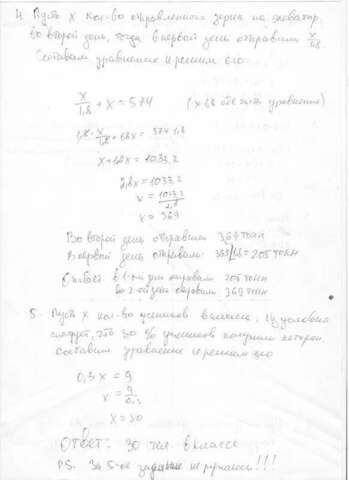 4. Пусть x кол-во отправленного зерна на элеватор
во второй день, тогда в первой день отправили x/1,8
Составим уравнение и решим его.
x/1,8 + x = 574 (x 1,8 обе части уравнения)
1,8 · x/1,8 + 1,8x = 574 · 1,8
x + 1,8x = 1033,2
2,8x = 1033,2
x = 1033,2/2,8
x = 369
Во второй день отправили 369 тонн
В первой день отправили 369/1,8 = 205 тонн
Ответ: в 1-ый день отправили 205 тонн
Во 2-ой день отправили 369 тонн
5. Пусть x кол-во учеников в классе, из условия
следует, что 30 % учеников получили
Составим уравнение и решим его
0,3x = 9
x = 9/0,3
x = 30
Ответ: 30 чел. в классе
P.S. За 5-ое задание не ручаюсь!!!